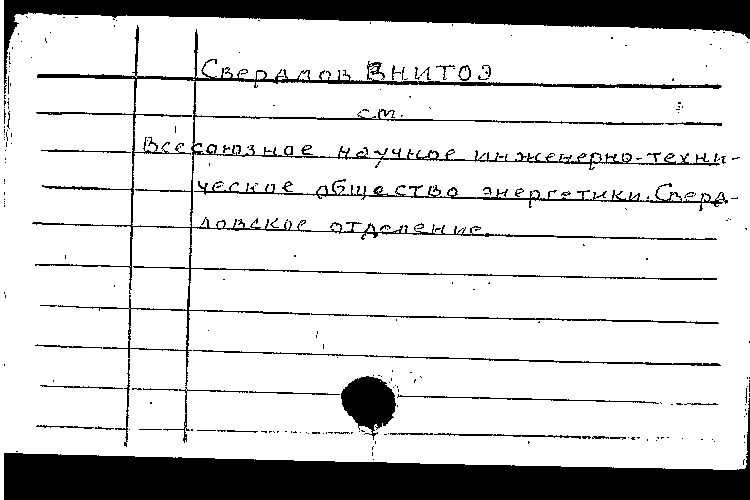 Свердлов ВНИТОЭ
см.
Всесоюзное научное инженерно-техни-
ческое общество энергетики. Сверд-
ловское отделение.